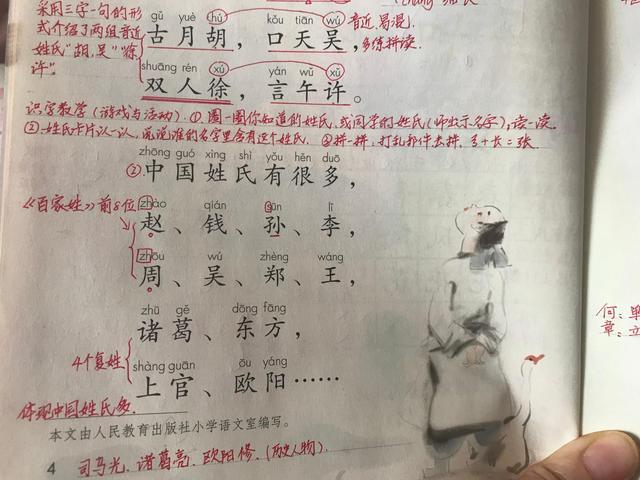 采用三字一句的形
式介绍了两组音近
姓氏"胡,吴""徐,
许".
gǔ yuè hú kǒu tiān wú
古月胡，口天吴，
音近,易混.
多练拼读.
shuāng rén xú yán wǔ xǔ
双人徐，言午许。
识字教学(游戏与活动).①圈一圈你知道的姓氏,或同学的姓氏(师出示名字),读一读.
②姓氏卡片认一认,说说谁的名字里含有这个姓氏. ③拼一拼,打乱部件去拼,弓+长=张
zhōng guó xìng shì yǒu hěn duō
②.中国姓氏有很多，
《百家姓》前8位
zhào qián sūn lǐ
赵、钱、孙、李，
zhōu wú zhèng wáng
周、吴、郑、王，
zhū gě dōng fāng
诸葛、东方，
4个复姓
shàng guān ōu yáng
上官、欧阳……
体现中国姓氏多.
本文由人民教育出版社小学语文室编写。
4 司马光.诸葛亮.欧阳修.(历史人物)
何:单
章:立